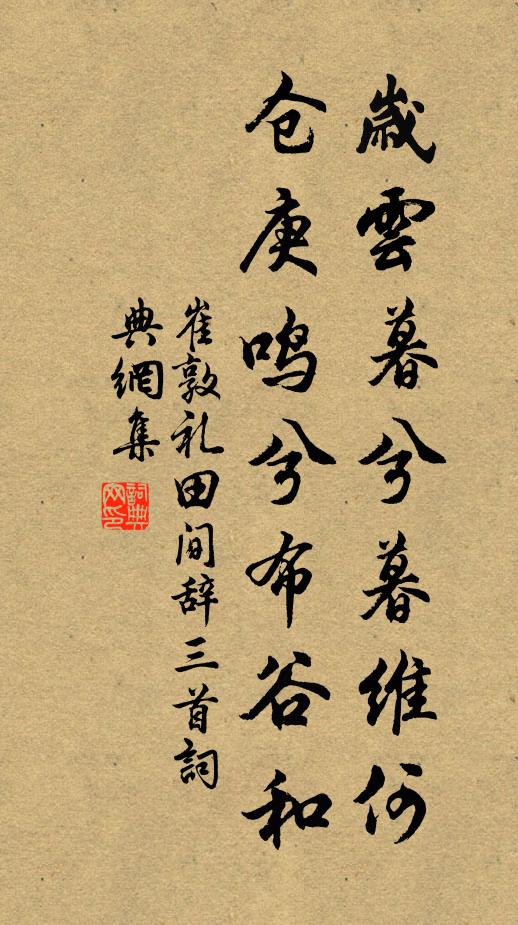 歳雲暮兮暮維何
仓庚鸣兮布谷和
崔敦礼田间辞三首詞
典網集
詞典
网印